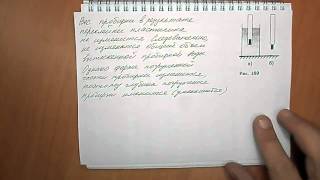 Вес пробирки в результате
перемещения пластилина
не изменяется. Следовательно,
не изменится общий объем
вытесненной пробиркой воды.
Однако форма погруженной
части пробирки изменится,
поэтому глубина погружения
пробирки изменится (уменьшится)
а) б)
Рис. 189